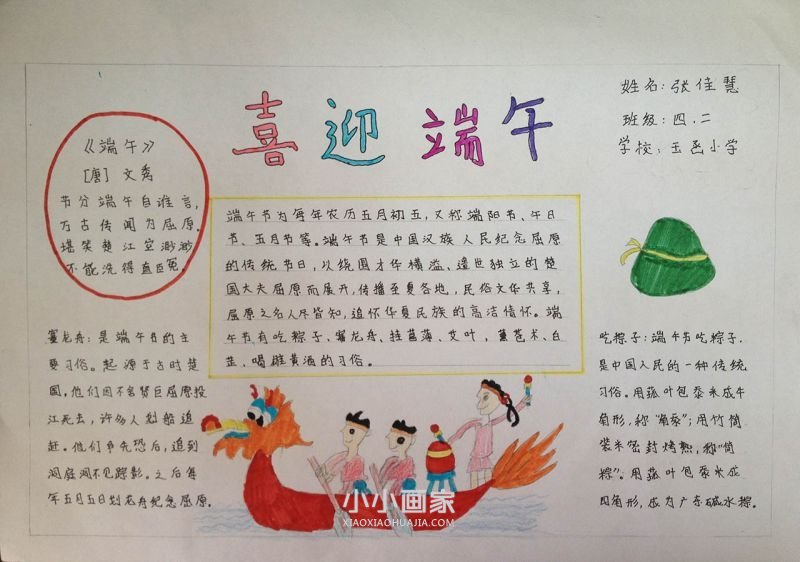 喜迎端午
姓名:张佳慧
班级:四.二
学校:玉函小学
《端午》
[唐] 文秀
节分端午自谁言,
万古传闻为屈原.
堪笑楚江空渺渺
不能洗得直臣冤。
端午节为每年农历五月初五,又称端阳节、午日
节、五月节等。端午节是中国汉族人民纪念屈原
的传统节日,以绕围才华横溢、遗世独立的楚
国大夫屈原而展开,传播至夏各地,民俗文华共享,
屈原之名人尽皆知,追怀华夏民族的高洁情怀。端
午节有吃粽子、赛龙舟、挂菖蒲、艾叶,薰苍术、白
芷、喝雄黄酒的习俗。
赛龙舟:是端午节的主
要习俗。起源于古时楚
国,他们因不舍贤臣屈原投
江死去,许多人划船追
赶。他们争先恐后,追到
洞庭湖不见踪影。之后每
年五月五日划龙舟纪念屈原.
吃粽子:端午节吃粽子.
是中国人民的一种传统
习俗。用菰叶包黍米成牛
角形,称"角黍";用竹筒
装米密封烤熟,称"筒
粽"。用菰叶包黍米成
四角形,成为广东碱水粽.
小小画家
XIAOXIAOHUAJIA.COM